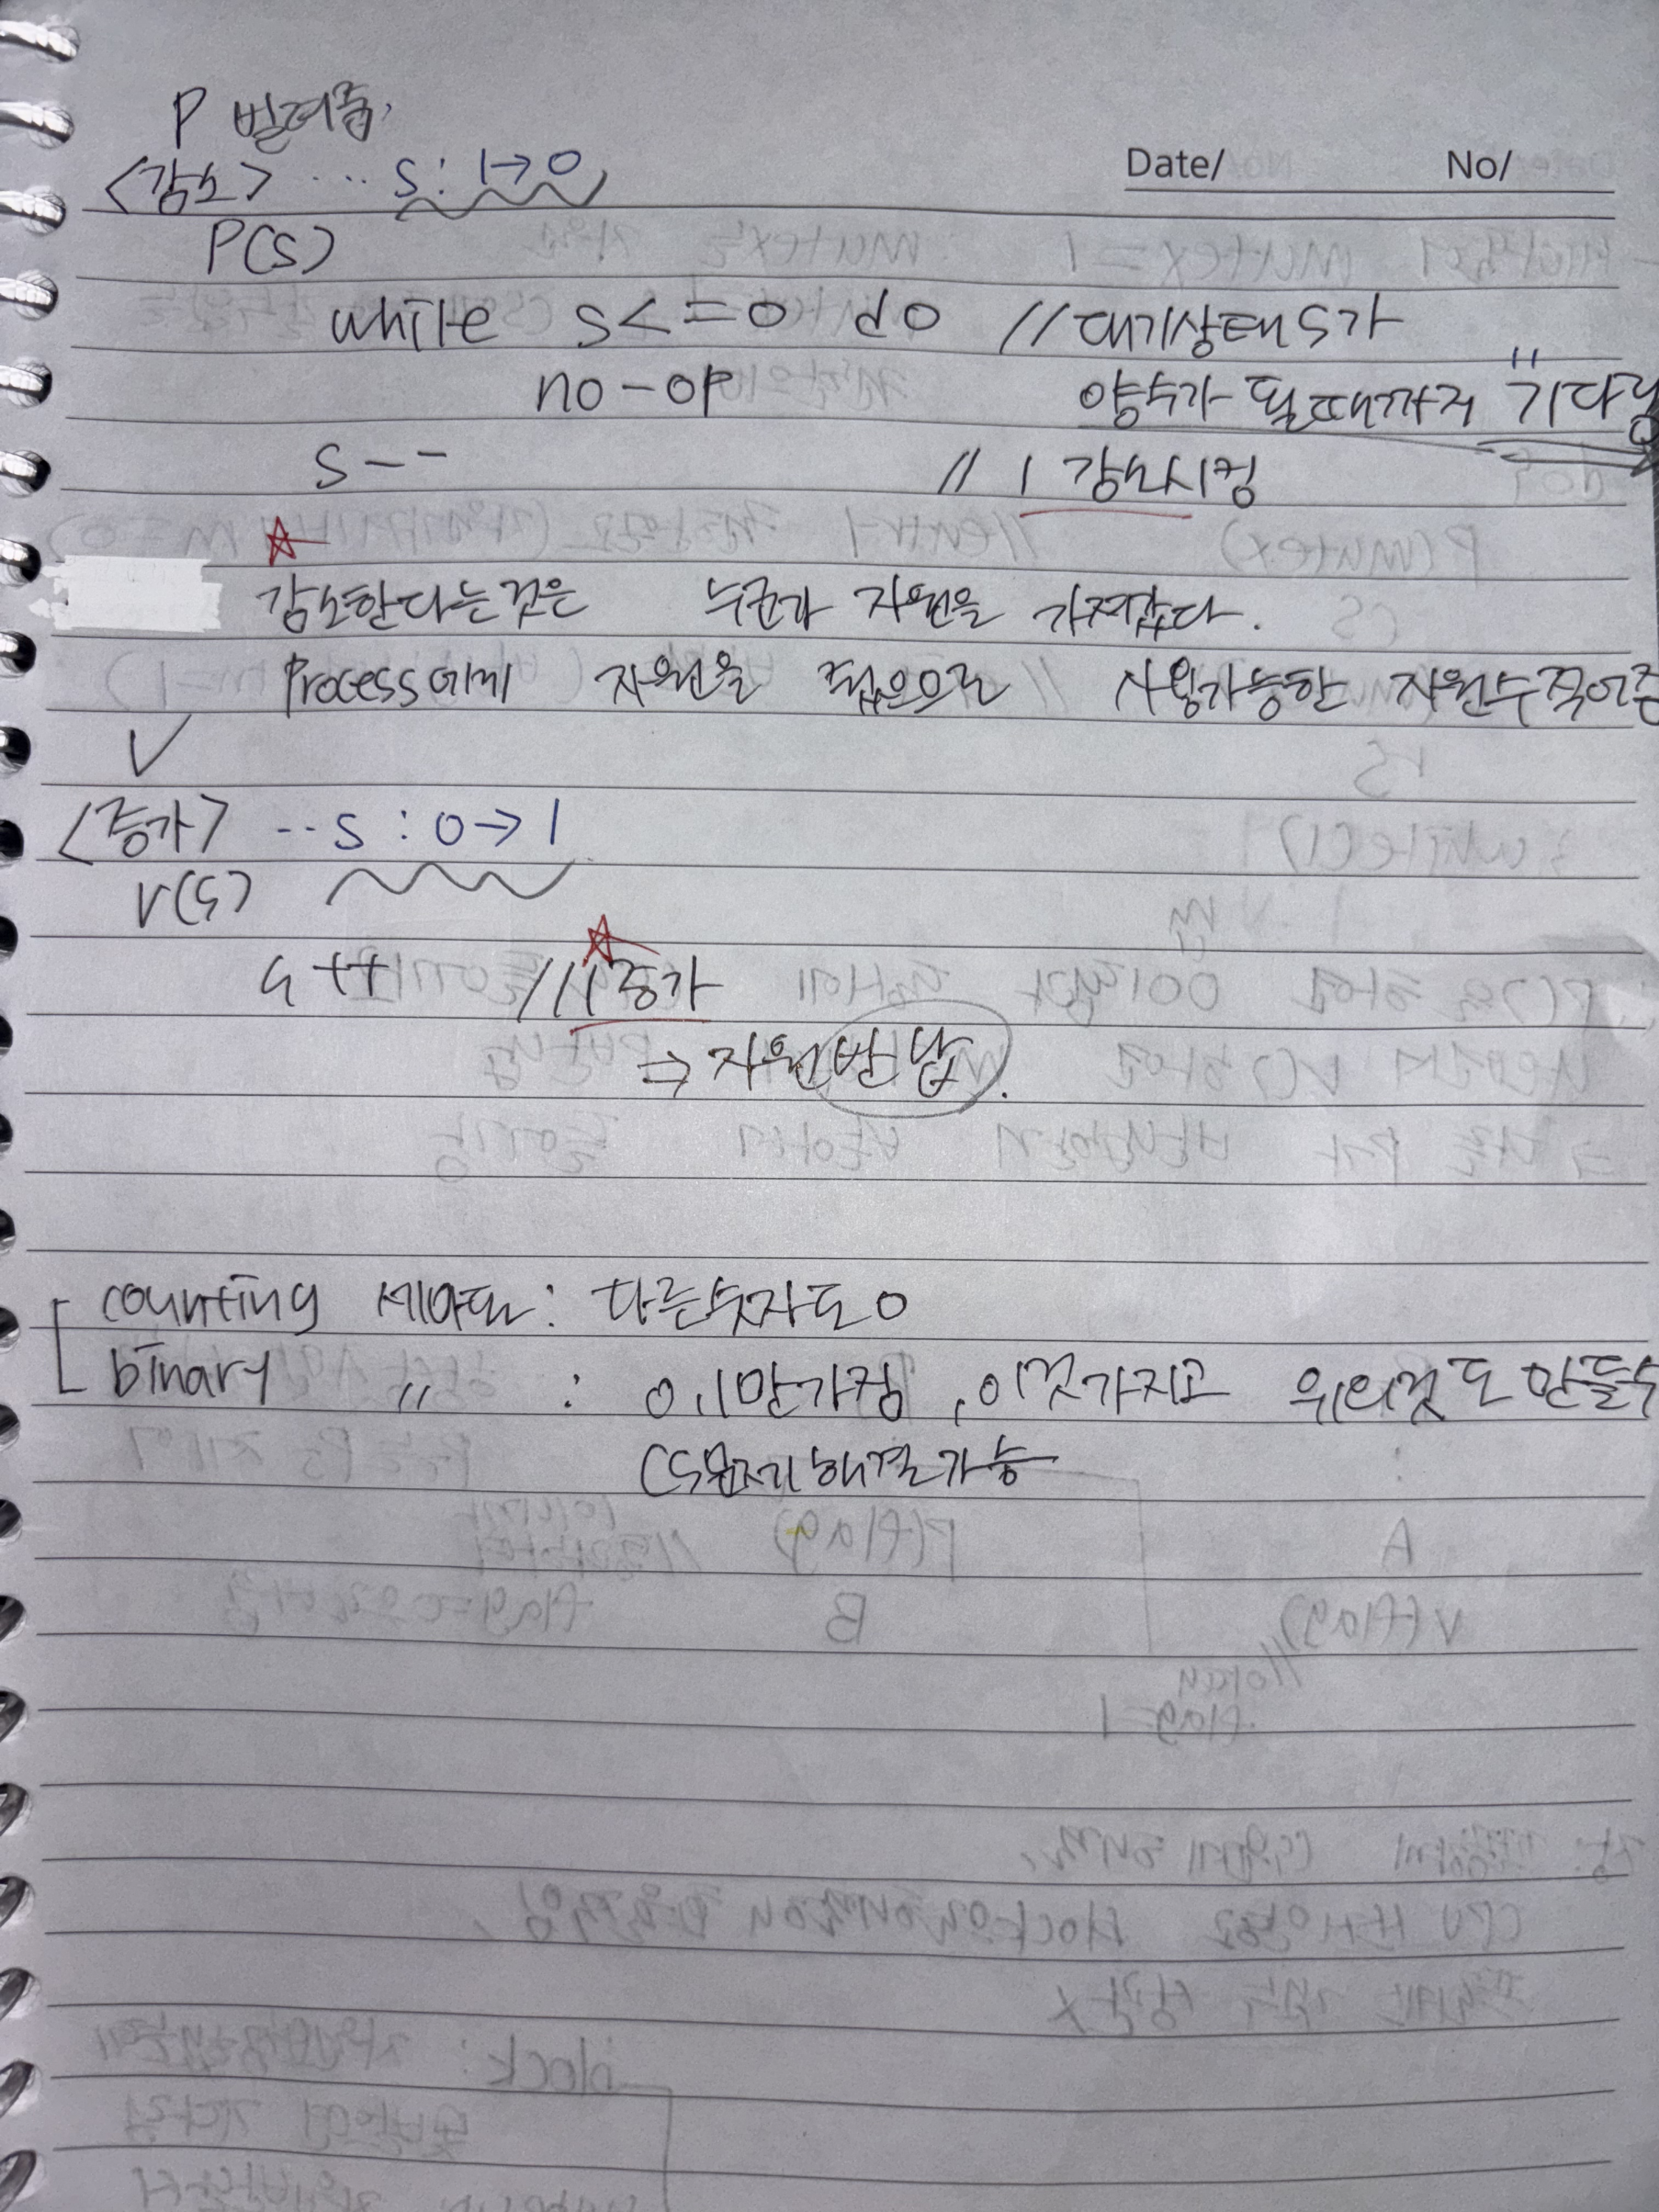 P 빌려줌.
<감소> ... S: 1→0
Date/ No/
P(S)
while S<=0 do //대기상태 S가
no-op 양수가 될때까지 "기다림
S-- // 1 감소시킴
감소한다는것은 누군가 자원을 가져갔다.
Process에게 자원을 줬음으로 사용가능한 자원수 적어줌
V
<증가> ..S : 0→1
V(S)
S++ //1증가
⇒ 자원반납.
counting 세마포 : 다른숫자도 O
binary 〃 : 0,1만가짐, 이것가지고 위의것도 만들수
CS문제해결가능